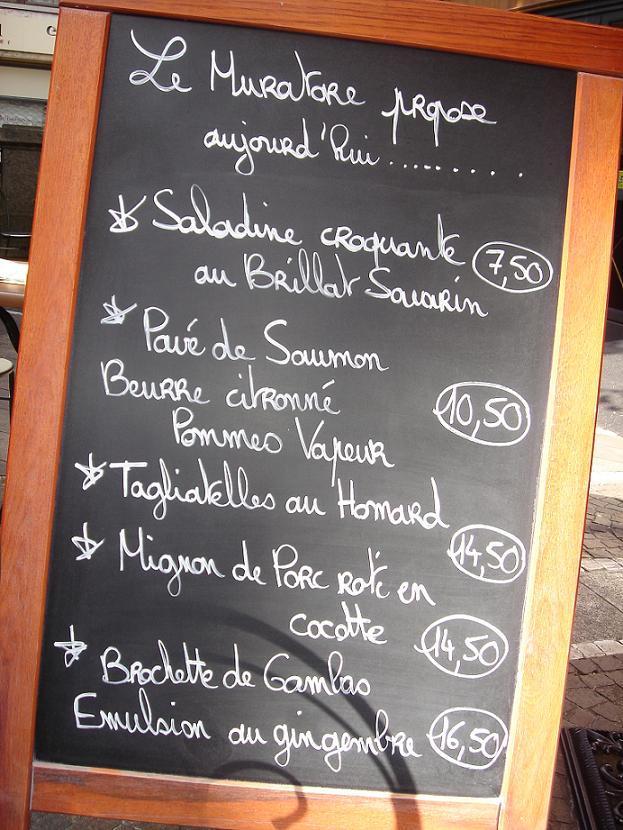 Le Muratore propose
aujourd'hui ...........
Saladine croquante 7,50
au Brillat Savarin
Pavé de Saumon
Beurre citronné 10,50
Pommes Vapeur
Tagliatelles au Homard
14,50
Mignon de Porc roti en
cocotte 14,50
Brochette de Gambas
Emulsion au gingembre 16,50